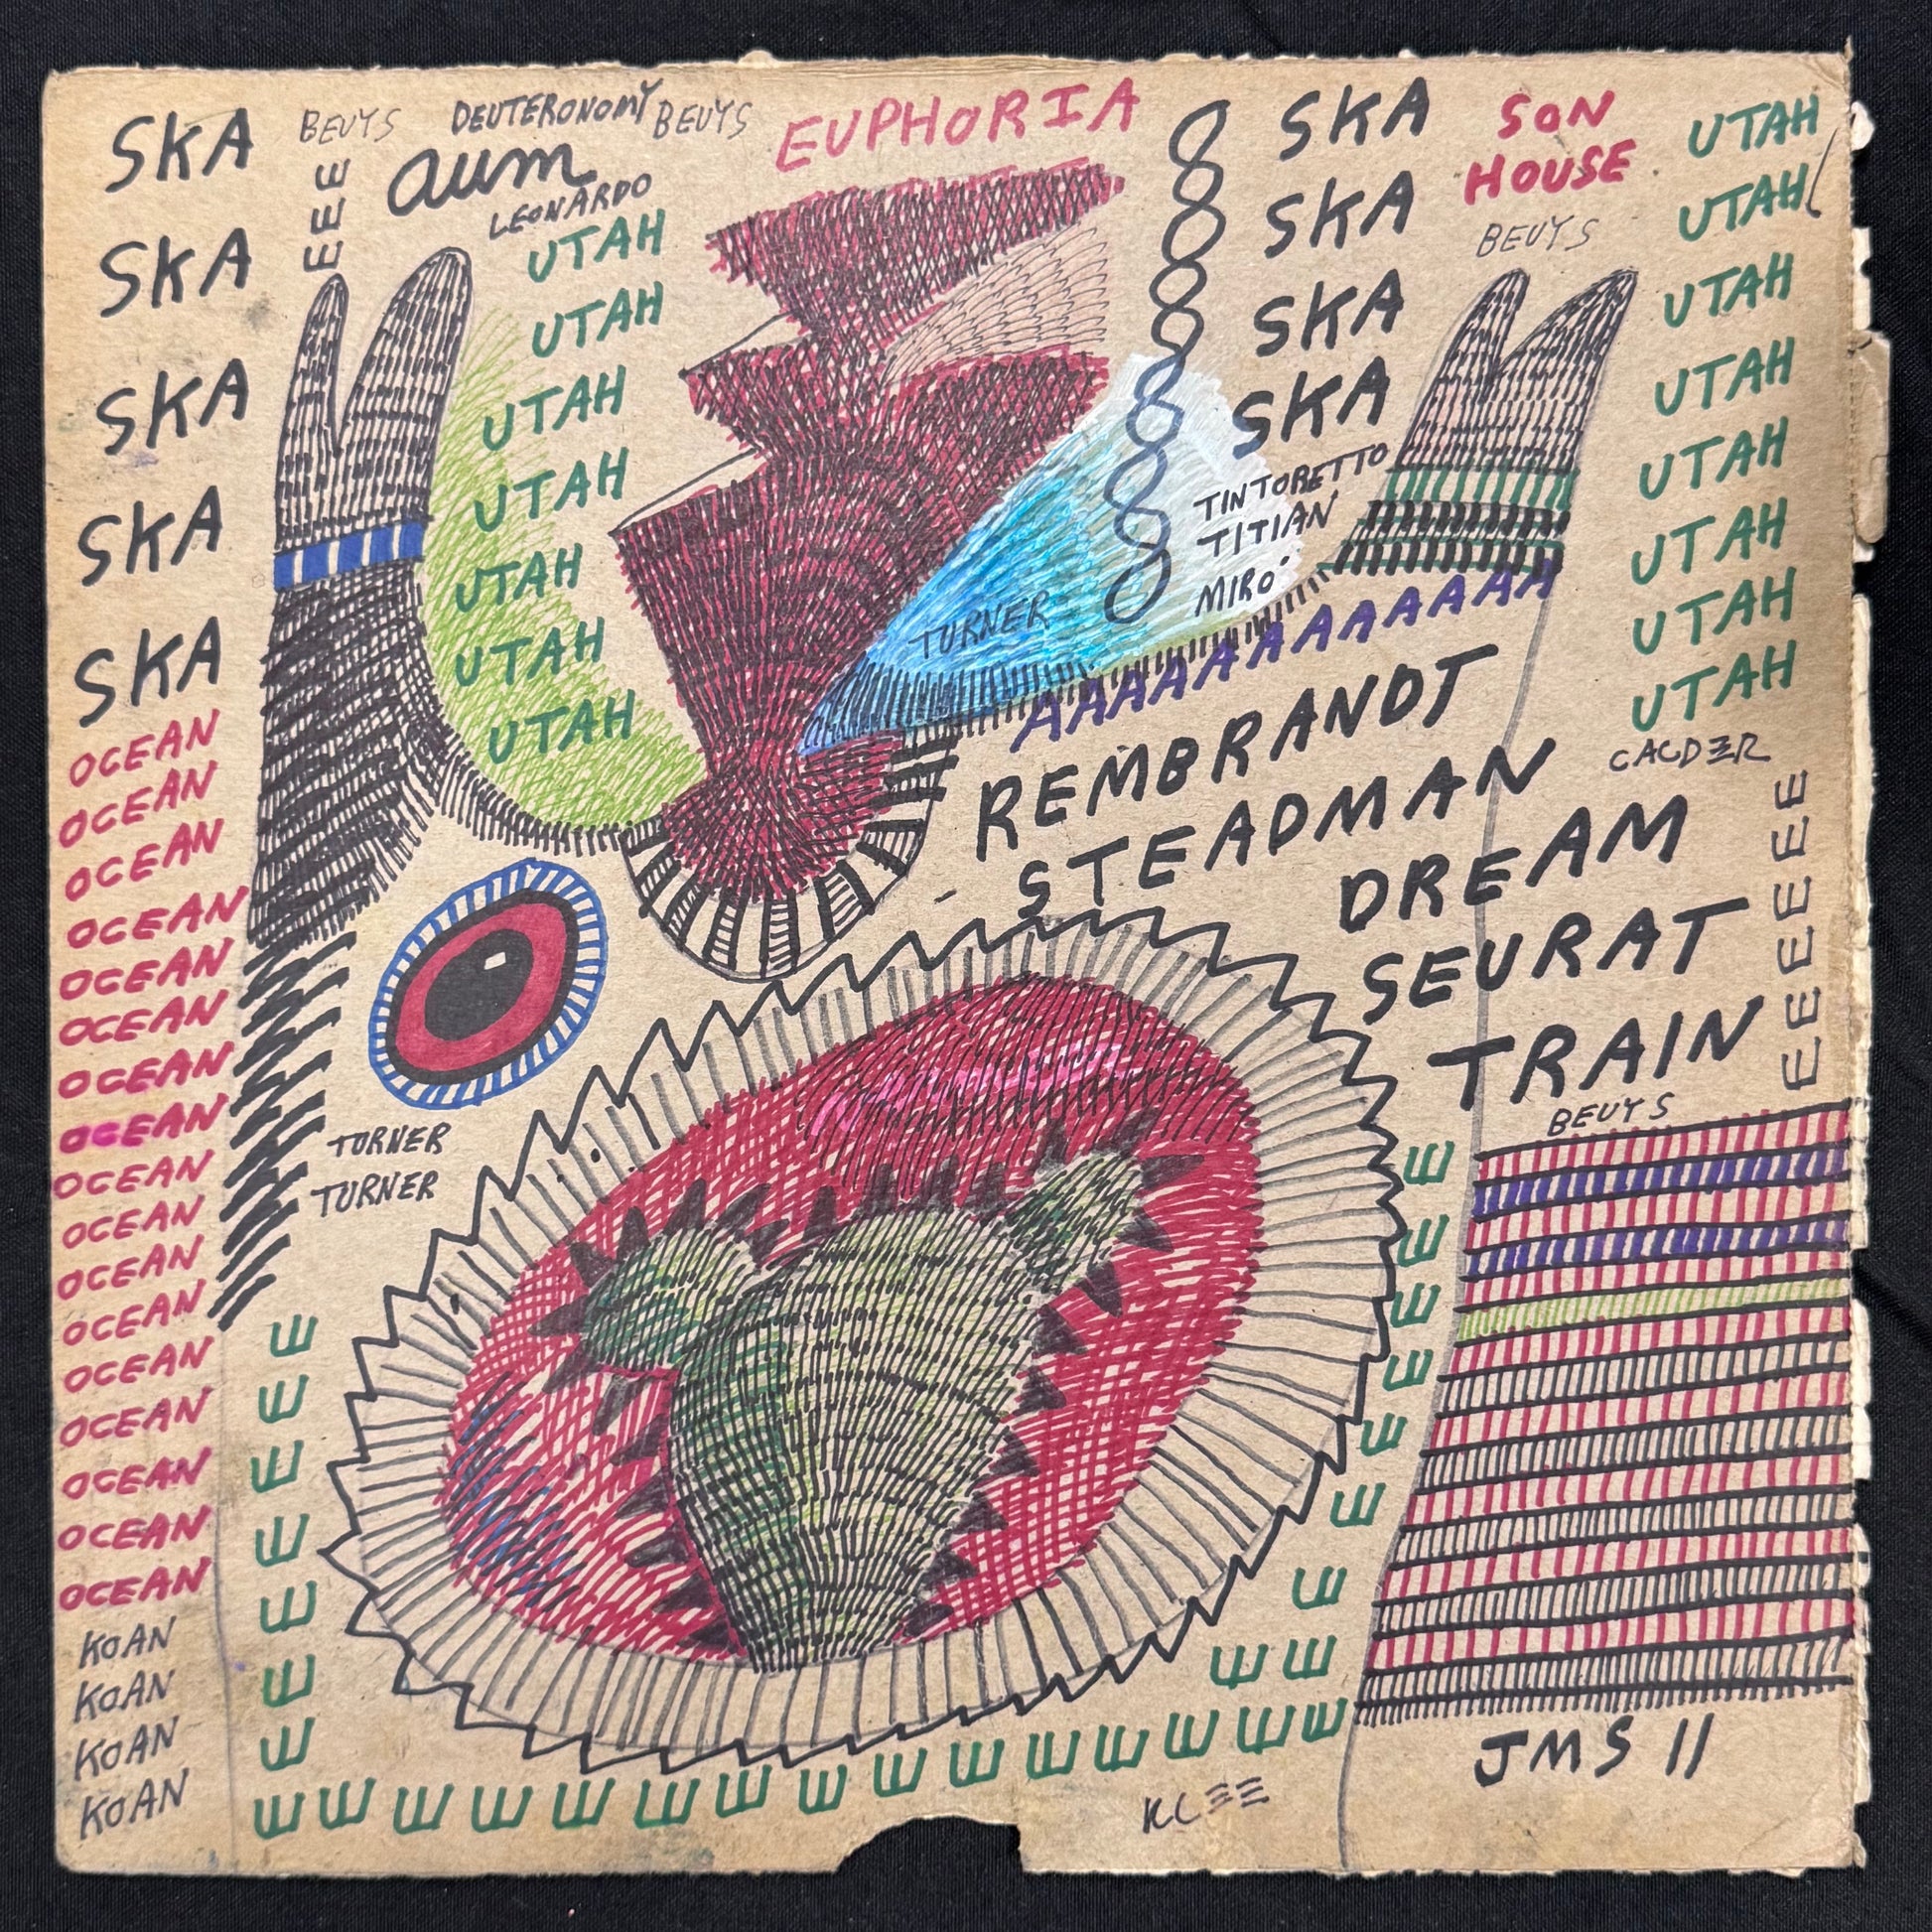 SKA
SKA
SKA
SKA
SKA
OCEAN
OCEAN
OCEAN
OCEAN
OCEAN
OCEAN
OCEAN
OCEAN
OCEAN
OCEAN
OCEAN
OCEAN
OCEAN
OCEAN
OCEAN
OCEAN
OCEAN
KOAN
KOAN
KOAN
KOAN
BEUYS
EEE
DEUTERONOMY
BEUYS
aum
LEONARDO
UTAH
UTAH
UTAH
UTAH
UTAH
UTAH
UTAH
EUPHORIA
SKA
SKA
SKA
SKA
SON
HOUSE
BEUYS
UTAH
UTAH
UTAH
UTAH
UTAH
UTAH
UTAH
UTAH
TINTORETTO
TITIAN
MIRO
TURNER
AAAAAAAAAAAAA
REMBRANDT
STEADMAN
DREAM
SEURAT
TRAIN
CALDER
EEEEEEE
BEUYS
TURNER
TURNER
E
E
E
E
E
E
E
E
E
E
E
E
E
E
E E
E E E E E E E E E E E E E E E
KLEE
JMS 11